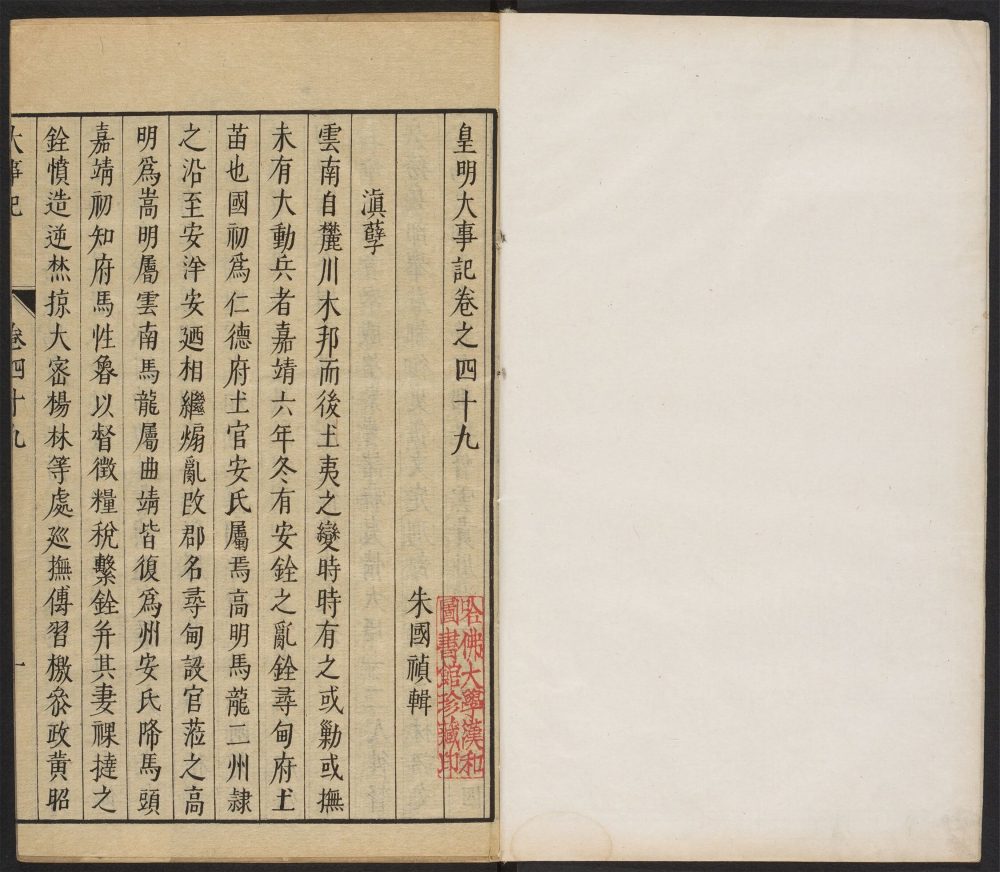 皇明大事記卷之四十九
朱國禎輯
哈佛大學漢和
圖書館珍藏印
滇孽
雲南自麓川木邦而後土夷之變時時有之或勦或撫
未有大動兵者嘉靖六年冬有安銓之亂銓尋甸府土
苗也國初爲仁德府土官安氏屬焉高明馬龍二州隸
之沿至安洋安廼相繼煽亂改郡名尋甸設官蒞之高
明爲嵩明屬雲南馬龍屬曲靖皆復爲州安氏降馬頭
嘉靖初知府馬性魯以督徵糧稅繫銓并其妻裸撻之
銓憤造逆焚掠大宻楊林等處廵撫傅習檄叅政黄昭
大事記 卷四十九 一